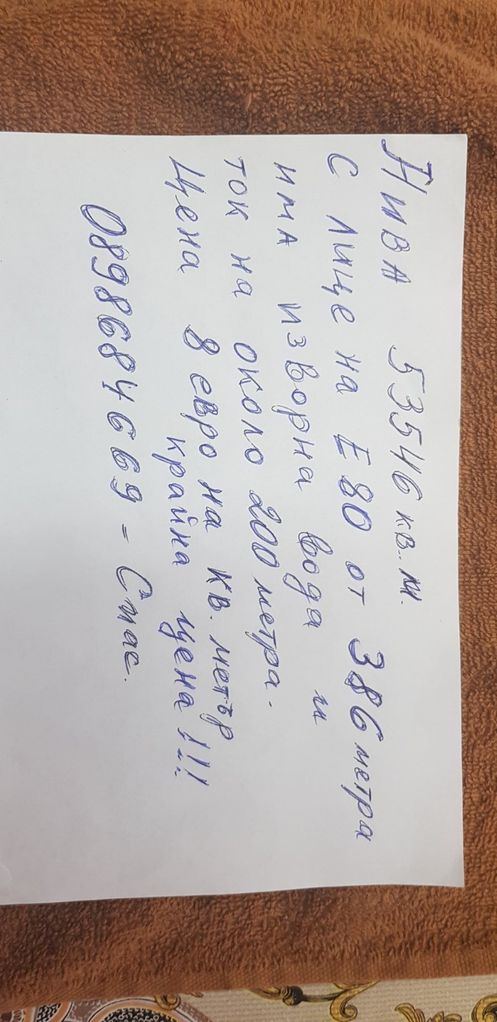 Нива 53546 кв. м.
с лице на Е80 от 386 метра
има изворна вода и
ток на около 200 метра.
Цена 8 евро на кв. метър
крайна цена!!!
0898684669 - Спас.